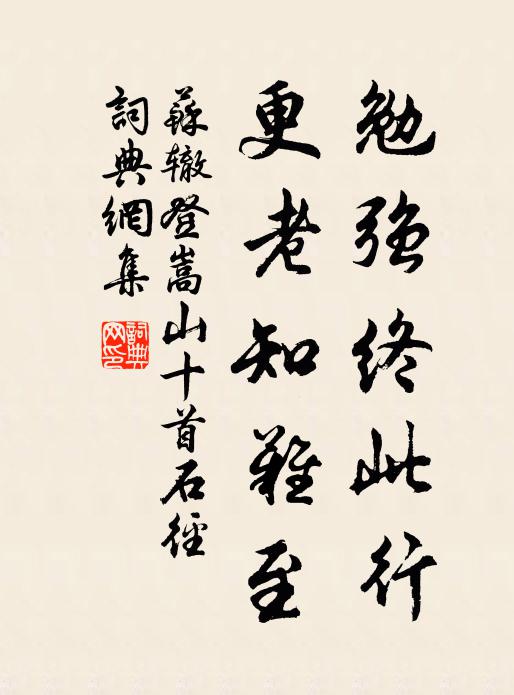 勉強終此行
更老知難至
蘇轍登嵩山十首石徑
詞典網集
詞典網印